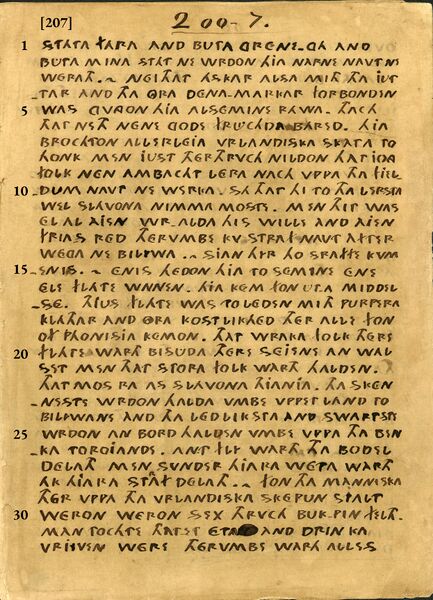 [207]
200-7.
1 STATA FARA AND BUTA GRENE-GA AND
BUTA MINA STAT NE WRDON HIA NARNE NAVT NE
WERATH. ~ NEI THAT ASKAR ALSA MITH THA IUT
TAR AND THA ORA DENA-MARKAR FORBONDEN
5 WAS GVNGON HIA ALSEMINE RAWA. THACH
THAT NETH NENE GODE FRUCHDA BARED. HIA
BROCHTON ALLERLEIA VRLANDISKA SKATA TO
HONK MEN IUST THERTHRVCH NILDON THAT IOGA
FOLK NEN AMBACHT LERA NACH VPPA THA FIEL
10 DUM NAVT NE WERKA. SA THAT HI TO THA LERSTA
WEL SLAVONA NIMMA MOSTE. MEN THIT WAS
EL AL AIEN WR-ALDA HIS WILLE AND AIEN
FRIAS RED THERVMBE KV STRAF NAVT AFTER
WEGA NE BILIWA. ~ SIAN HYR HO STRAFFE KVM
15 ENIS. ~ ENIS HEDON HIA TO SEMINE ENE
ELE FLATE WNNEN. HIA KEM FON UTA MIDDEL
SE. THIUS FLATE WAS TO LEDEN MITH PURPERA
KLATHAR AND ORA KOSTLIKHED THER ALLE FON
OF PHONISIA KEMON. THAT WRAKA FOLK THERE
20 FLATE WARTH BISUDA THERE SEIENE AN WAL
SET MEN THAT STORA FOLK WARTH HALDEN.
THAT MOS RA AS SLAVONA THIANIA. THA SKEN
NESTE WRDON HALDA VMBE VPPET LAND TO
BILIWANE AND THA LEDLIKSTA AND SWARTSTE
25 WRDON AN BORD HALDEN VMBE VPPA THA BEN
KA TOROIANDE. ANT FLY WARTH THA BODEL
DELATH MEN SVNDER HIARA WETA WARTH
AK HIARA STRAF DELATH. ~ FON THA MANNISKA
THER VPPA THA VRLANDISKA SKEPUN STALT
30 WERON WERON SEX THRVCH BUK-PIN FELTH.
MAN TOCHTE THATET ETA AND DRINKA
VRIEVEN WERE THERVMBE WARTH ALLES